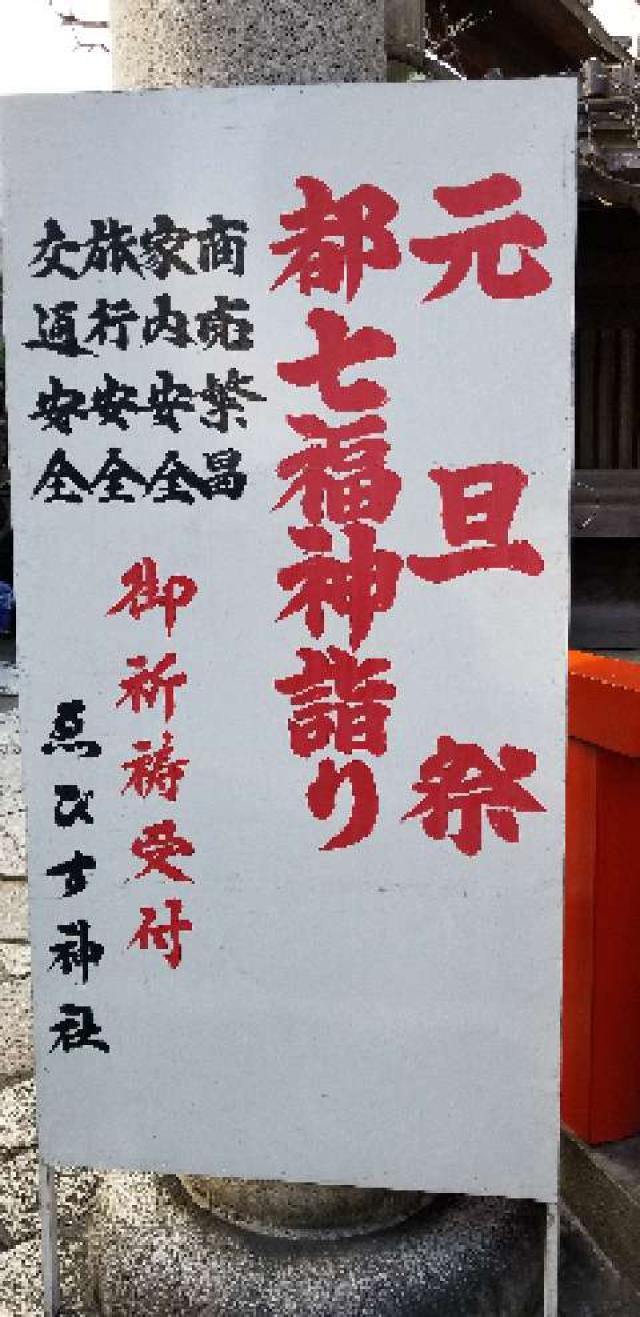 元旦祭
都七福神詣り
商売繁昌
家内安全
旅行安全
交通安全
御祈祷受付
ゑびす神社